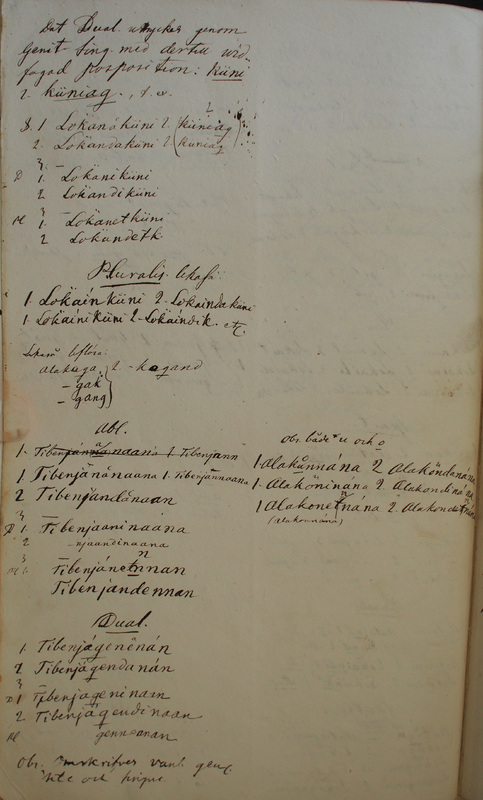 Dat Dual uttryckes genom
Genit Sing med dertill vid-
fogad postposition: küni
2. küniag., s. v.
S. 1 Lokanáküni 2. (küniag)
2. Lokandaküni 2 (kuniag
3
D 1. Lokaniküni
2. Lokandiküni
3
Pl 1. Lokanetküni
2 Lokandetk.
Pluralis
1. Lokäinküni 2. Lokaindaküni
1. Lokäiniküni 2 Lokaindik. etc.
alakuga, 2. - kagand
- gak
- gang
Abl.
1. Tibenjanánaana 1. Tibenjannaana
2 Tibenjandánaan
3
D 1. Tibenjaaninaana
2 -njaandinaana
3
Pl 1. Tibenjánetnnan
Tibenjandennan
Obs. både u och o
1 Alakånnána 2 Alakondanána
1. Alakoninana 2 Alakondinána
1 Alakonetnána 2. Alakondetnan
(alakonnána)
Dual.
1. Tibenjágenënán
2 Tibenjágendanán
3
D 1 Tibenjageninaan
2. Tibenjágendinaan
Pl genneanan
Obs. omskrifves vanl. gen
och